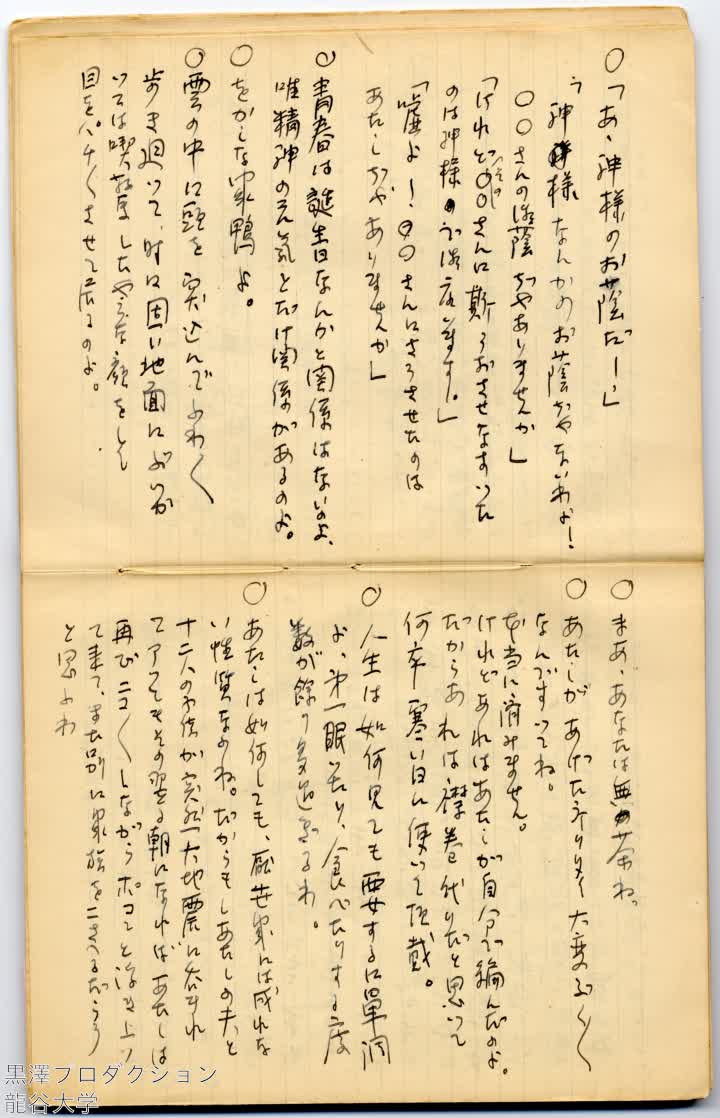 ○「あゝ神様のお蔭だー！」
「神様なんかのお蔭ぢやないわよ！
○○さんの御蔭ぢやありませんか」
「けれど○○さんに斯うおさせなすつた
のは神様のうで御座います！」
「嘘よ！○○さんにさうさせたのは
あたしぢやありませんか」
○青春は誕生日なんかと関係はないのよ、
唯精神の元気とだけ関係があるのよ。
○をかしな家鴨よ。
○雲の中に頭を突込んでふわ〱
歩き廻つて、時に固い地面にぶつか
つては喫驚したやうな顔をして
目をパチ〱させて居るのよ。
○まあ、あなたは無茶ね。
○あたしがあげた 大変ぶく〱
なんですつてね。
本当に済みません。
けれどあれはあたしが自分で編んだのよ。
だからあれは襟巻代りだと思つて
何卒寒い日に使つて頂戴。
○人生は如何見ても要するに単調
よ、第一眠つたり、食べたりする度
数が余り多過ぎるわ。
○あたしは如何しても、厭世家には成れな
い性質なのね。だからもしあたしの夫と
十二人の子供が突然大地震に呑まれ
てアつてもその翌る朝になればあたしは
再びニコ〱しながらポコンと浮き上つ
て来て、また別に家族をこさへるだらう
と思ふわ
黒澤プロダクション
龍谷大学